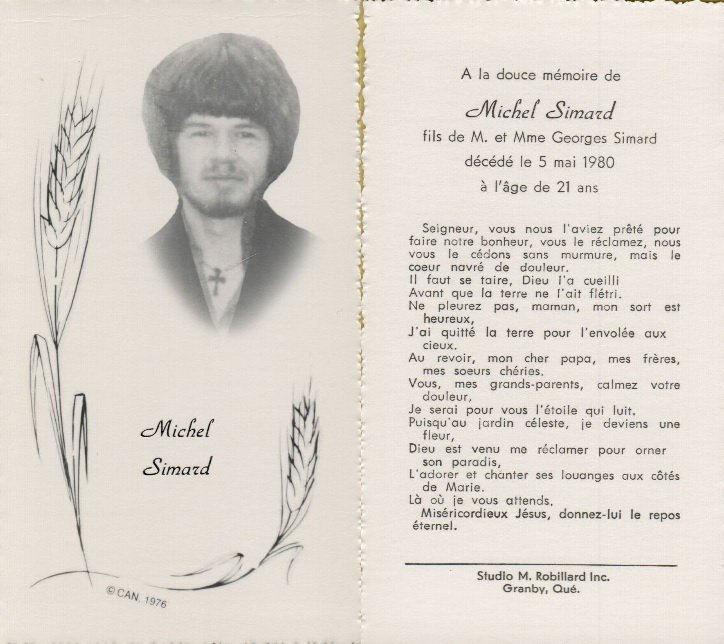 Michel
Simard
© CAN. 1976
A la douce mémoire de
Michel Simard
fils de M. et Mme Georges Simard
décédé le 5 mai 1980
à l'âge de 21 ans
Seigneur, vous nous l'aviez prêté pour
faire notre bonheur, vous le réclamez, nous
vous le cédons sans murmure, mais le
coeur navré de douleur.
Il faut se taire, Dieu l'a cueilli
Avant que la terre ne l'ait flétri.
Ne pleurez pas, maman, mon sort est
heureux,
J'ai quitté la terre pour l'envolée aux
cieux.
Au revoir, mon cher papa, mes frères,
mes soeurs chéries.
Vous, mes grands-parents, calmez votre
douleur,
Je serai pour vous l'étoile qui luit.
Puisqu'au jardin céleste, je deviens une
fleur,
Dieu est venu me réclamer pour orner
son paradis,
L'adorer et chanter ses louanges aux côtés
de Marie.
Là où je vous attends.
Miséricordieux Jésus, donnez-lui le repos
éternel.
Studio M. Robillard Inc.
Granby, Qué.